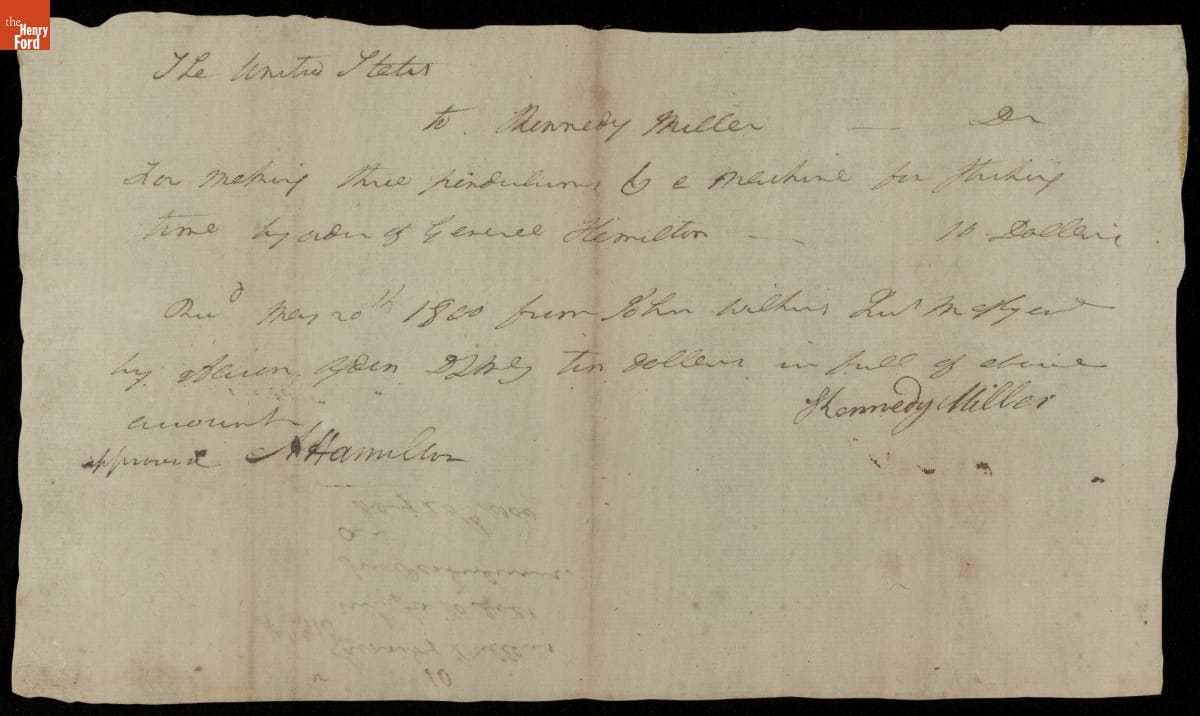 the
Henry
Ford
The United States
to Kennedy Miller — Dr
For making three pendulums & a machine for striking
time by order of General Hamilton — 10 Dollars
Recd May 20th 1800 from John Wilkins Qur Mr
by Aaron Ogden DQMG ten Dollars in full of above
account
Kennedy Miller
approved A Hamilton